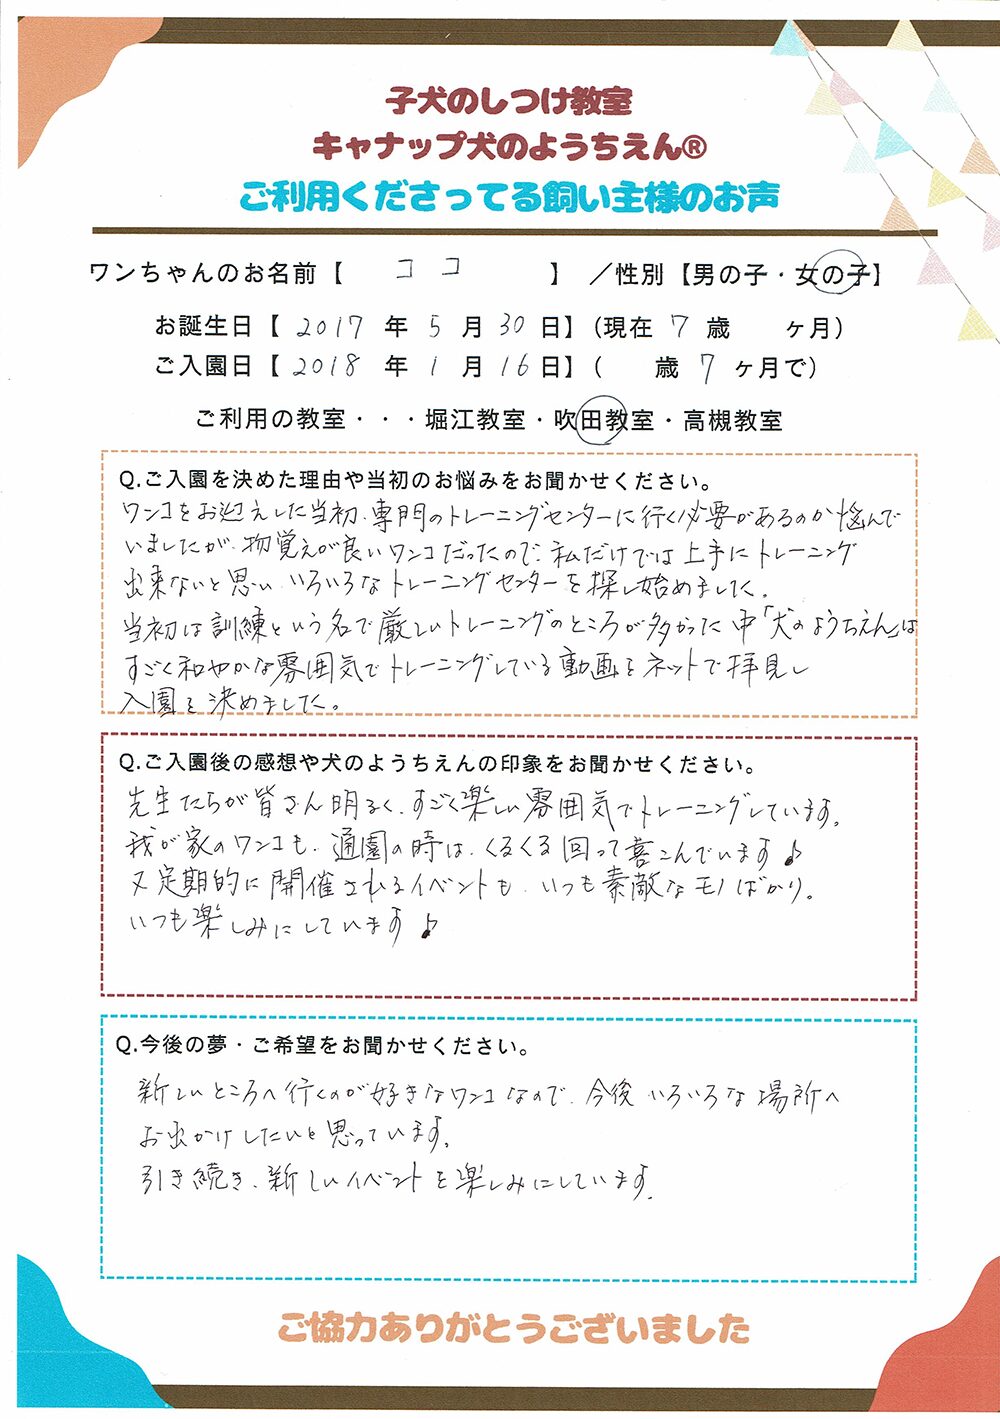 子犬のしつけ教室
キャナップ犬のようちえん®
ご利用くださってる飼い主様のお声
ワンちゃんのお名前【 ココ 】 ／性別【男の子・女の子】
お誕生日【 2017 年 5 月 30 日】(現在 7 歳 ヶ月)
ご入園日【 2018 年 1 月 16 日】( 歳 7 ヶ月で)
ご利用の教室・・・堀江教室・吹田教室・高槻教室
Q.ご入園を決めた理由や当初のお悩みをお聞かせください。
ワンコをお迎えした当初、専門のトレーニングセンターに行く必要があるのか悩んで
いましたが、物覚えが良いワンコだったので、私だけでは上手にトレーニング
出来ないと思い、いろいろなトレーニングセンターを探し始めました。
当初は訓練という名で厳しいトレーニングのところが多かった中「犬のようちえん」は
すごく和やかな雰囲気でトレーニングしている動画をネットで拝見し
入園を決めました。
Q.ご入園後の感想や犬のようちえんの印象をお聞かせください。
先生たちが皆さん明るく、すごく楽しい雰囲気でトレーニングしています。
我が家のワンコも、通園の時は、くるくる回って喜こんでいます♪
又定期的に開催されるイベントも、いつも素敵なモノばかり。
いつも楽しみにしています♪
Q.今後の夢・ご希望をお聞かせください。
新しいところへ行くのが好きなワンコなので、今後いろいろな場所へ
お出かけしたいと思っています。
引き続き、新しいイベントを楽しみにしています。
ご協力ありがとうございました